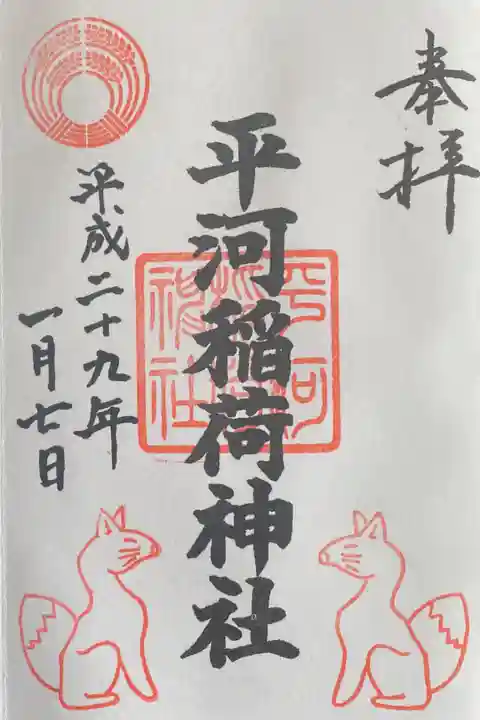 奉拝
平河稲荷神社
平河稲荷神社
平成二十九年
一月七日